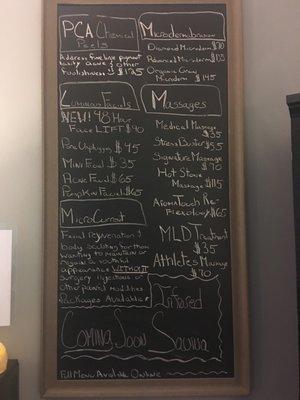 PCA Chemical
Peels
Address fine lines, pigment
acne & other
$125
Microdermabrasion
Diamond Microderm
Advanced Microderm
Organic Gray
Microderm $145
Luminous Facials
NEW! 48 Hour
Face LIFT $90
Pore Unplugging $45
Mini Facial $35
Acne Facial $65
Pumpkin Facial $65
Massages
Medical Massage
$35
Stress Buster $55
Signature Massage
$70
Hot Stone
Massage $115
AromaTouch Re-
flexology $65
MLD Treatment
$35
Athletes Massage
$70
MicroCurrent
Facial rejuvenation &
body sculpting for those
wanting to maintain or
regain a youthful
appearance WITHOUT
surgery, injections or
other painful modalities
Packages Available!
Infrared
Coming Soon Sauna
Full Menu Available Online